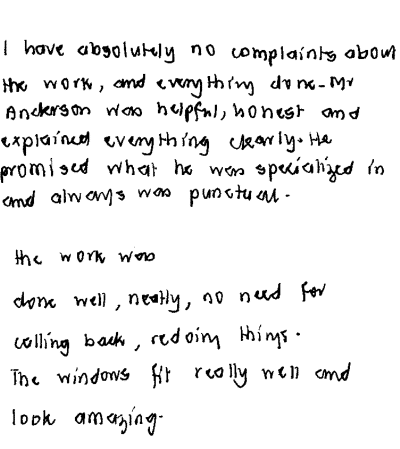 I have absolutely no complaints about
the work, and everything done. Mr
Anderson was helpful, honest and
explained everything clearly. He
promised what he was specialized in
and always was punctual.
the work was
done well, neatly, no need for
calling back, redoing things.
The windows fit really well and
look amazing.